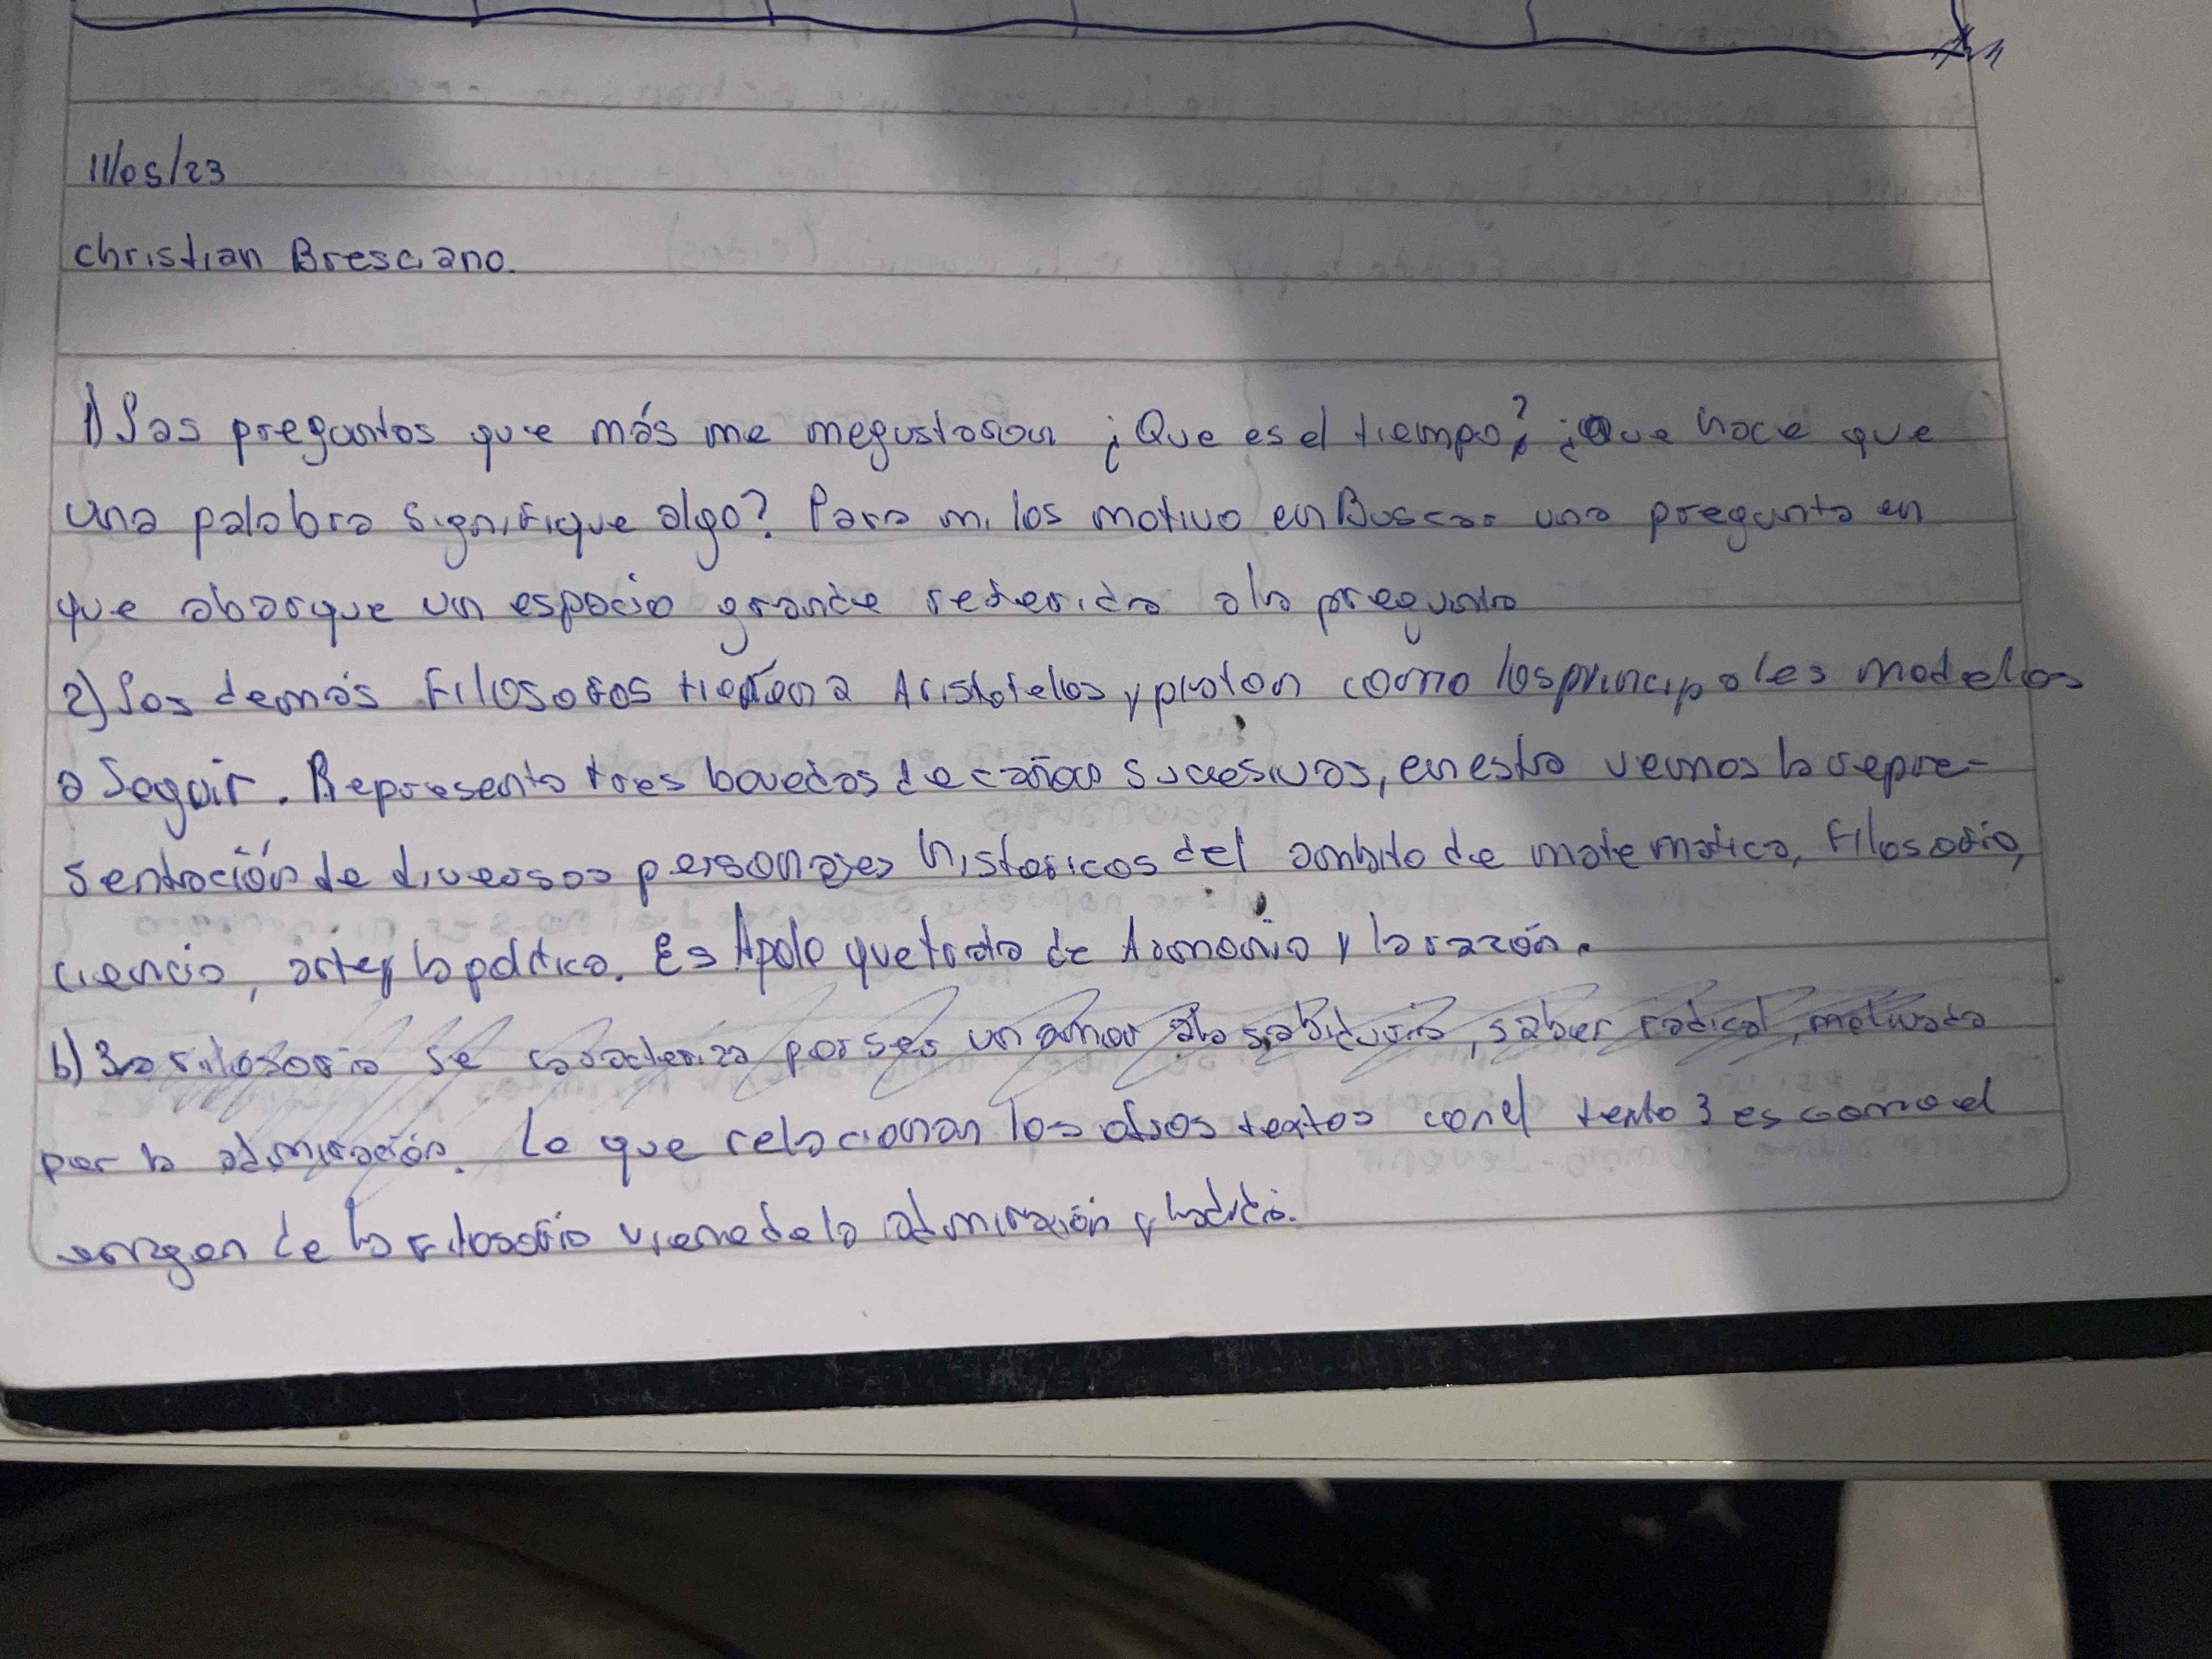 11/05/23
Christian Bresciano.
1) Las preguntas que más me megustaron ¿Que es el tiempo? ¿Que hace que
una palabra signifique algo? Para mi los motivo en Buscar una pregunta en
que abarque un espacio grande referida a la pregunta
2) Los demás Filosofos tienen a Aristoteles y platon como los principales modelos
a Seguir. Representa tres bovedas de cañon sucesivas, en esta vemos la repre-
sentación de diversos personajes históricos del ambito de matematica, Filosofia,
ciencia, arte y la politica. Es Apolo que trata de Armonia y la razón.
b) La filosofia se caracteriza por ser un amor a la sabiduria, saber radical, motivada
por la admiración. Lo que relacionan los otros textos con el texto 3 es como el
origen de la filosofia viene de la admiración y la duda.